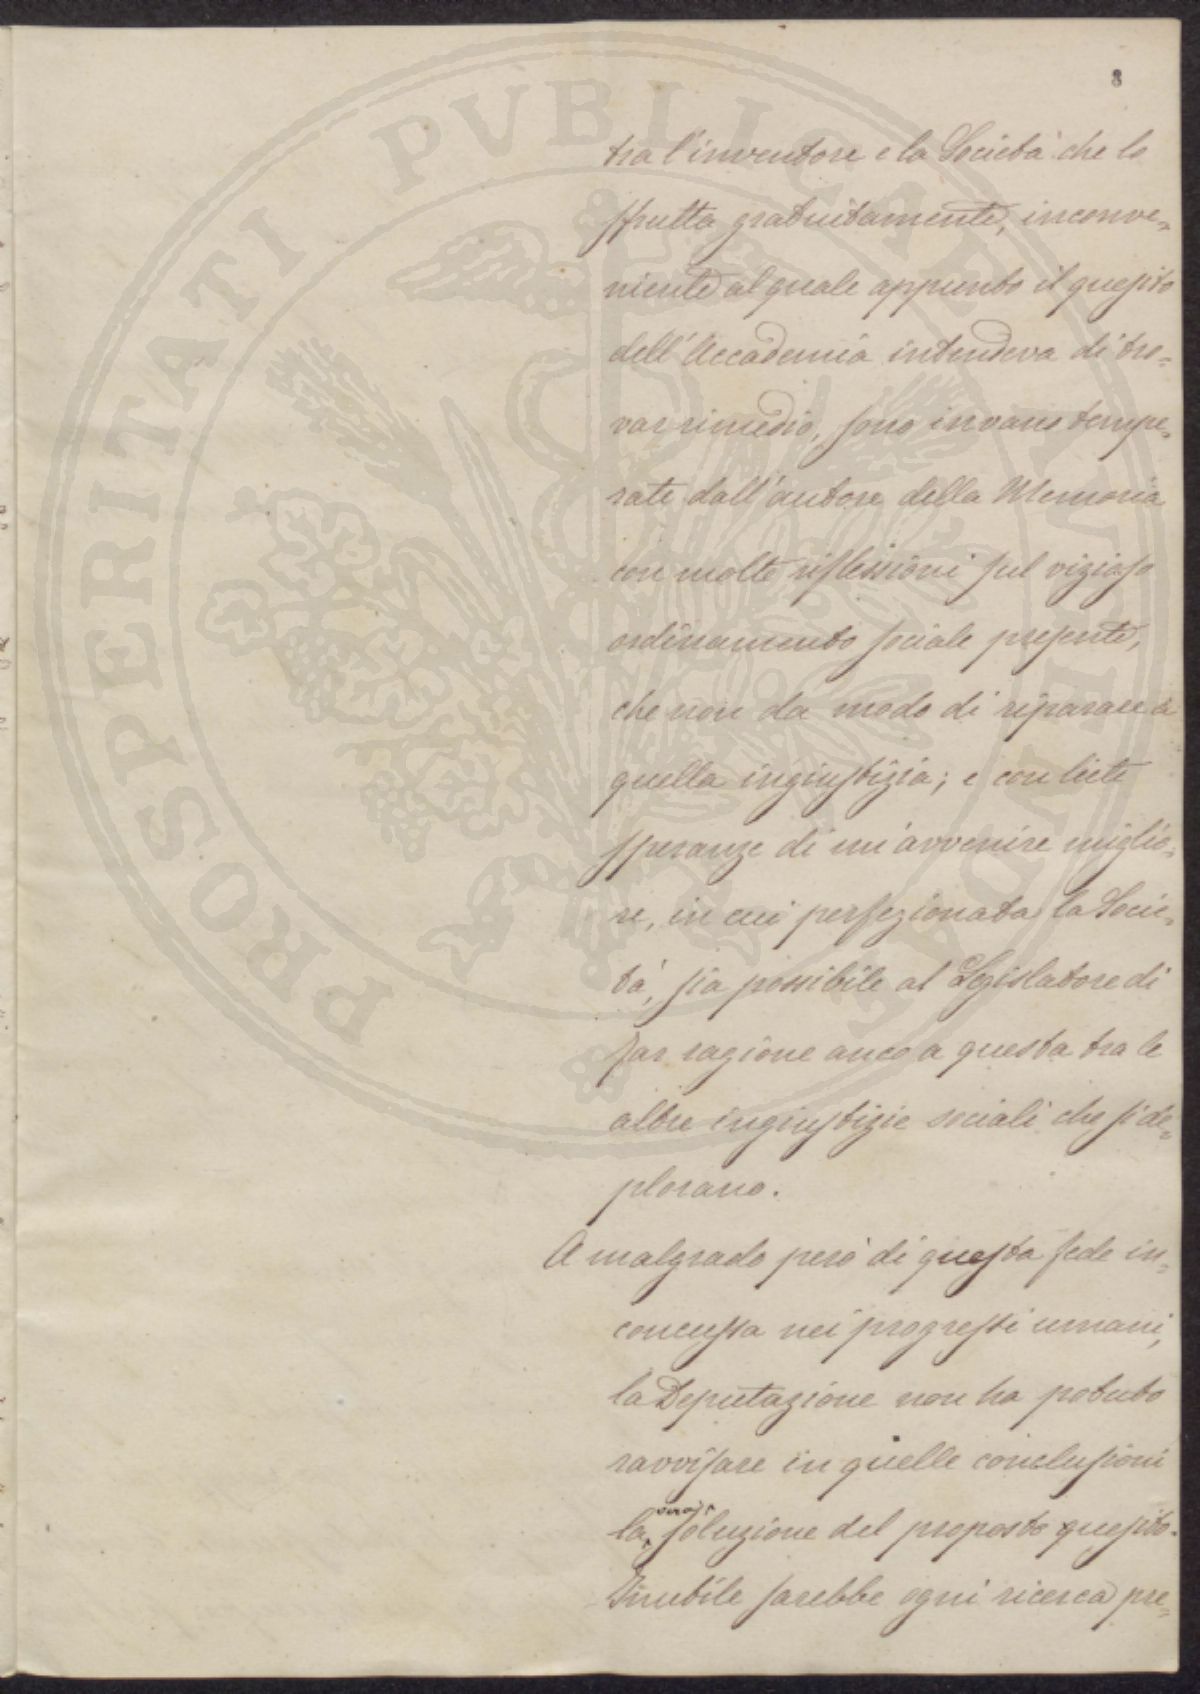 8
tra l'inventore e la Società che lo
sfrutta gratuitamente, inconve=
niente al quale appunto il quesito
dell'Accademia intendeva di tro=
var rimedio, sono invano tempe=
rate dall'autore della Memoria
con molte riflessioni sul vizioso
ordinamento sociale presente,
che non da modo di riparare a
quella ingiustizia; e con liete
speranze di un'avvenire miglio=
re, in cui perfezionata la Socie=
tà, sia possibile al Legislatore di
far ragione anco a questa tra le
altre ingiustizie sociali che si de=
plorano.
A malgrado però di questa fede in=
concussa nei progressi umani,
la Deputazione non ha potuto
ravvisare in quelle conclusioni
la soluzione del proposto quesito.
Inutile sarebbe ogni ricerca pre=
PROSPERITATI PUBLICAE AUGENDAE